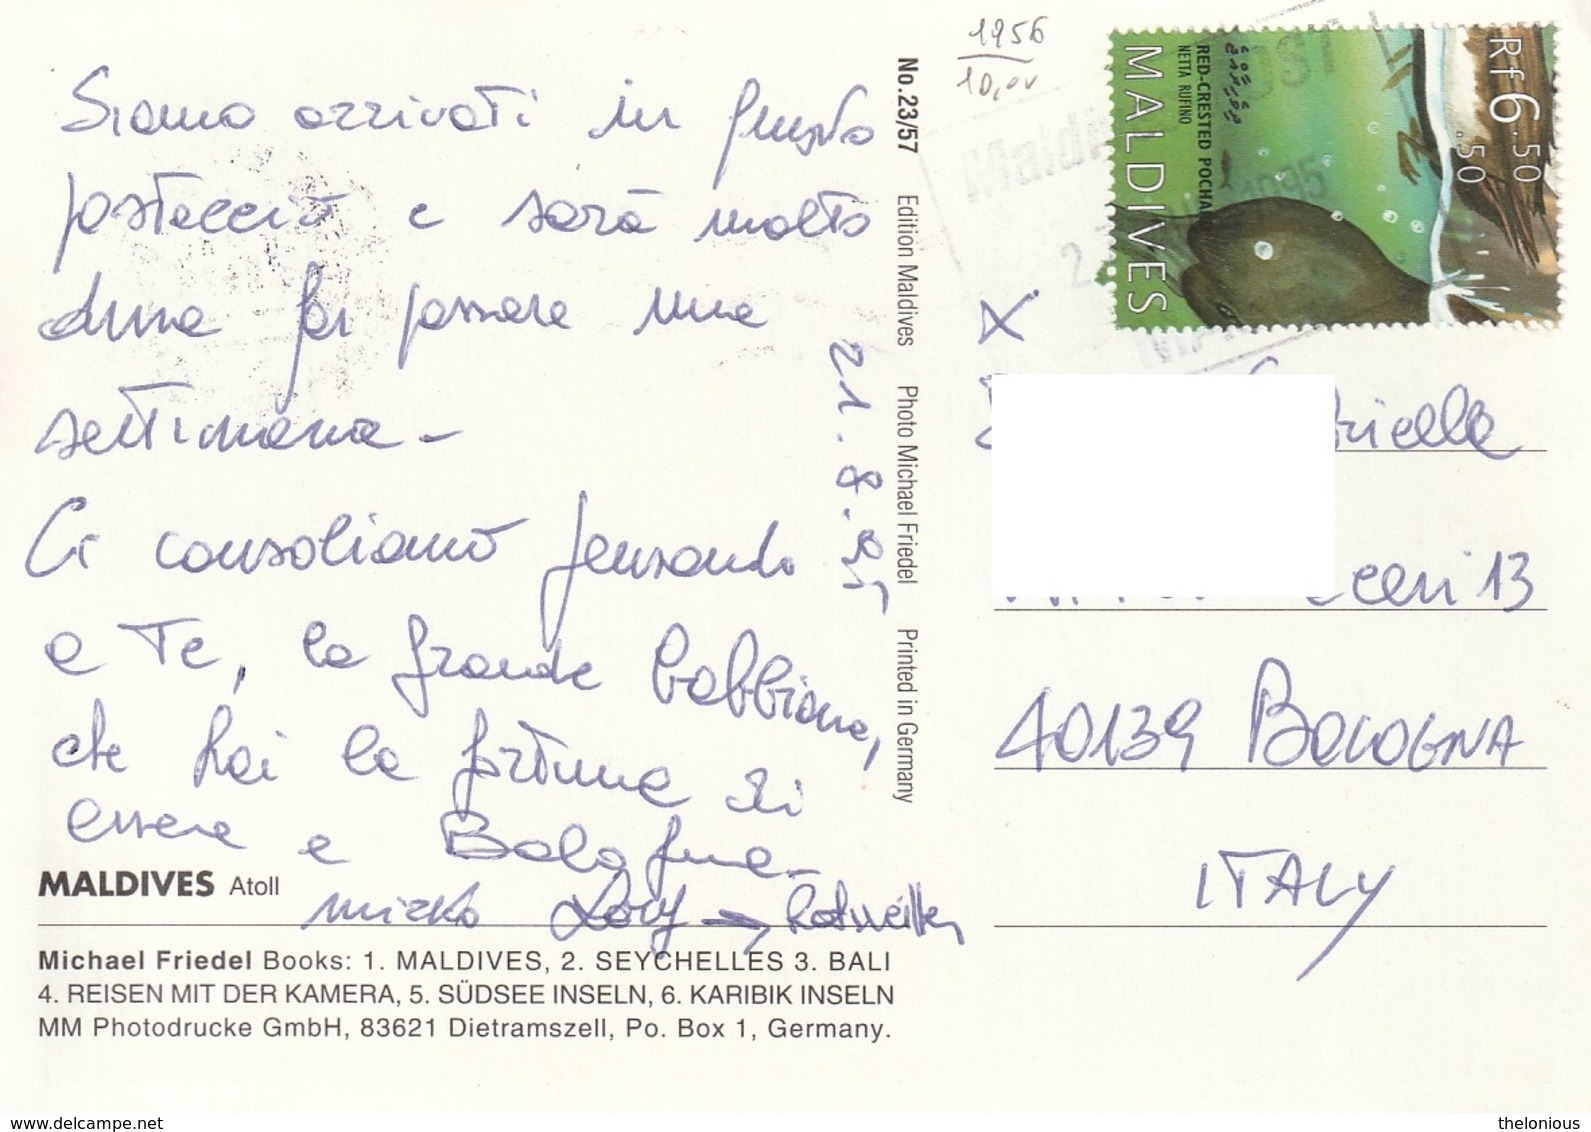 Siamo arrivati in questo
postaccio e sarà molto
dura far passare una
settimana –
Ci consoliamo pensando
a Te, la grande babbiona,
che hai la fortuna di
essere a Bologna –
mirko Lory → Rotweiller
21.8.95
MALDIVES Atoll
Michael Friedel Books: 1. MALDIVES, 2. SEYCHELLES 3. BALI
4. REISEN MIT DER KAMERA, 5. SÜDSEE INSELN, 6. KARIBIK INSELN
MM Photodrucke GmbH, 83621 Dietramszell, Po. Box 1, Germany.
No. 23/57 Edition Maldives Photo Michael Friedel Printed in Germany
1956
10,00
MALDIVES
RED-CRESTED POCHA
NETTA RUFINO
Rf6.50
.50
1995
X
riella
13
40139 BOLOGNA
ITALY
www.delcampe.net
thelonious